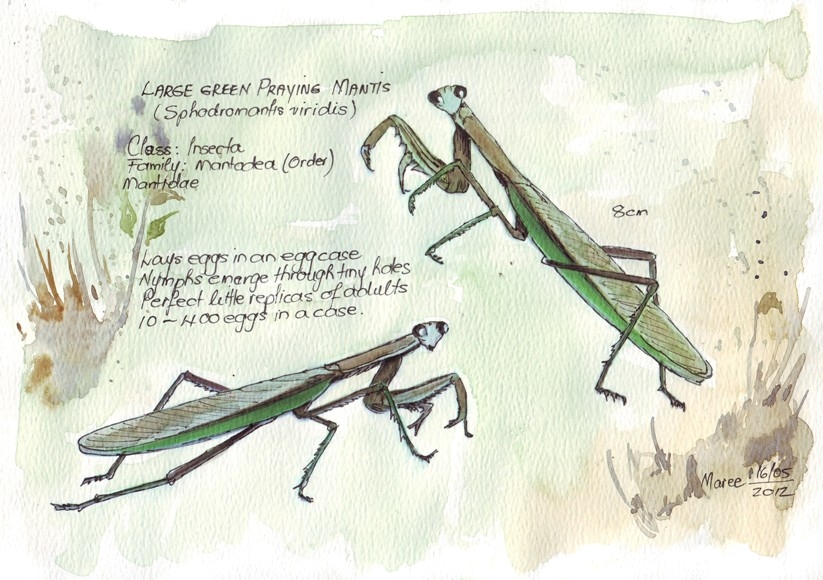 LARGE GREEN PRAYING MANTIS
(Sphodromantis viridis)
Class: Insecta
Family: Mantadea (Order)
Mantidae
Lays eggs in an eggcase
Nymphs emerge through tiny holes
Perfect little replicas of adults
10 ~ 400 eggs in a case.
8cm
Maree 16/05
2012